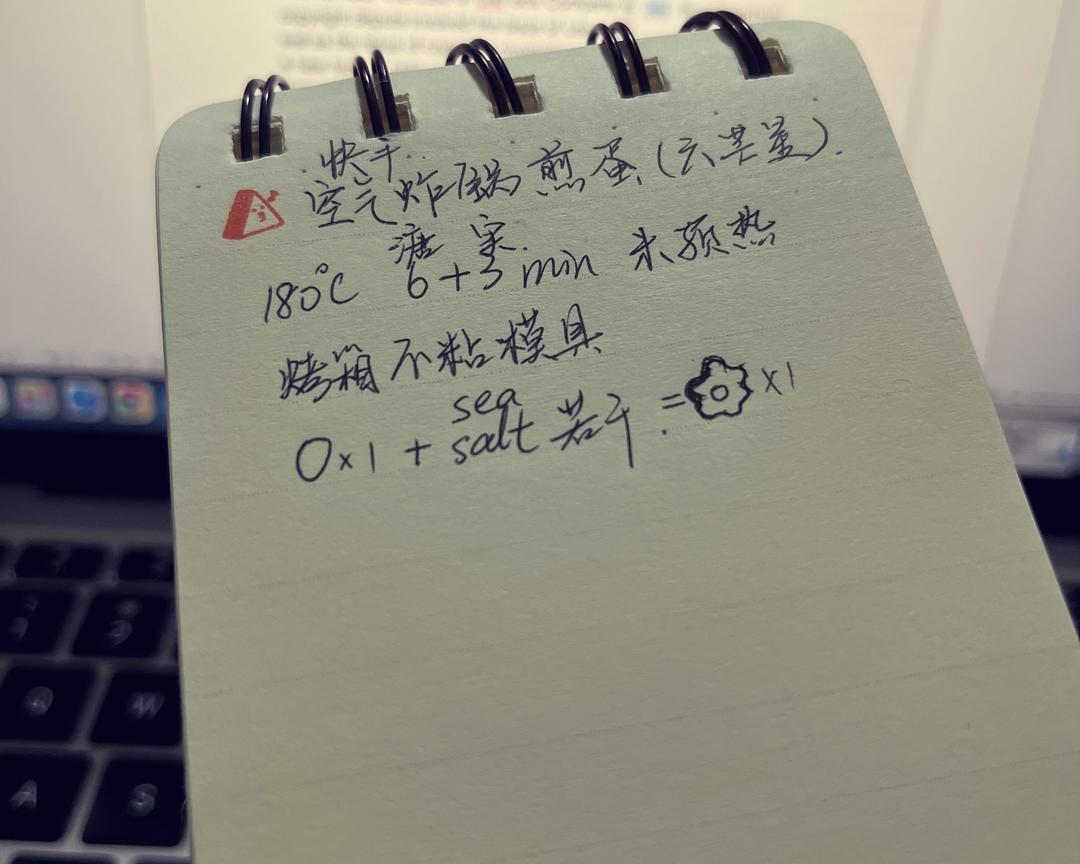 快手
空气炸锅煎蛋(云芝蛋).
溏 实.
180°C 6+3 min 未预热
烤箱不粘模具
sea
0×1 + salt 若干. = ×1
Q W
A S